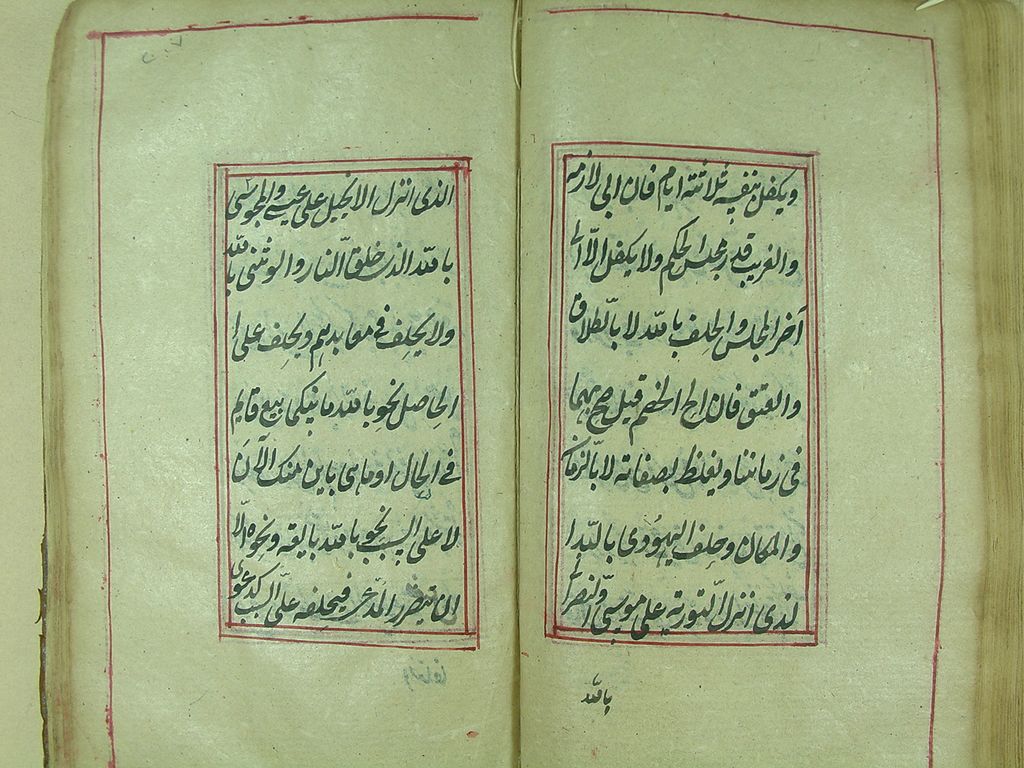 ويكفل بنفسه ثلاثته ايام فان ابى لازمه
والغريب قدر مجلس الحكم ولا يكفل الّا الى
آخر المجلس والحلف باللّه لا بالّطلاق
والعتق فان الح الخصم قيل صح بهما
فى زماننا ويغلظ بصفاته لا بالّزمان
والمكان وحلف اليهُودى باللّه ا
لذى انزل التورية على موسى والنصرانى
باللّه
الذى انزل الانجيل على عيسى والمجوسى
باللّه الذى خلق الّنار والوثنى باللّه
ولا يحلف فى معابدهم ويحلف على ا
الحاصل نحو باللّه ما بينكما بيع قايم
فى الحال او ما هى باين منك الآن
لا على السبب نحو باللّه ما بعته ونحوه الا
ان يتضرر المدعى فيحلفه على السبب كدعوى